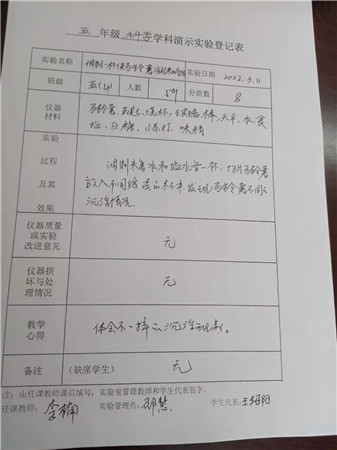 五 年级 科学 学科演示实验登记表
实验名称 调制一杯使马铃薯浮起来的 实验日期 2022.3.11
班级 五(4) 人数 59 分组数 8
仪器材料 马铃薯、烧杯、玻璃棒、天平、水、食
盐、白糖、小苏打、味精
实验过程及其效果 调制糖水和盐水各一杯，切片马铃薯
放入不同 液体 发现马铃薯不同的
沉浮情况。
仪器质量或实验改进意见 无
仪器损坏与处理情况 无
教学心得 体会不一样的沉浮现象。
备注 (缺席学生) 无
注：由任课教师课后填写，实验室管理教师和学生代表签字。
任课教师: 李楠 实验管理员: 学生代表: